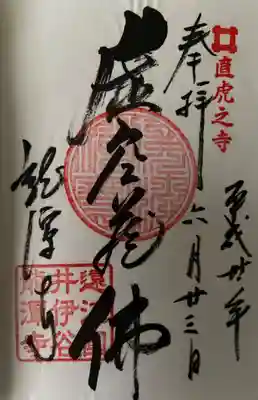 直虎之寺
奉拝
平成廿年
六月廿三日
虚空蔵佛
龍潭寺
遠江國
井伊谷
龍潭寺